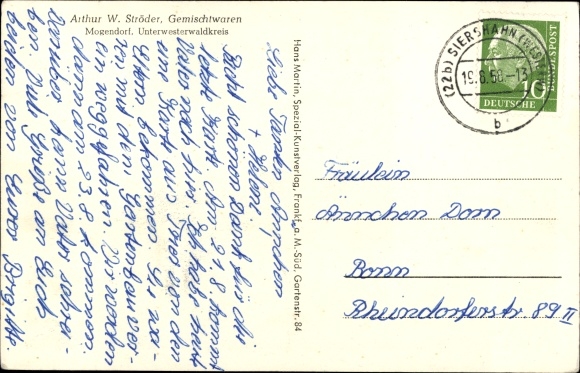 Arthur W. Ströder, Gemischtwaren
Mogendorf, Unterwesterwaldkreis
Liebe Tante
+ Helmi!
Recht schönen Dank für die
letzte Karte. Am 21.8. kommt
Vater nach hier. Ich habe heute
eine Karte aus von den
Eltern bekommen. Es waren
mit den Gartenbauverein
weggefahren. Wir werden
dann am 23.8. kommen.
Darüber kann Vater schreiben.
Viele Grüße an Euch
beiden von Eurer Brigitte
Hans Martin, Spezial-Kunstverlag, Frankf. a. M.-Süd, Gartenstr. 84
(22b) SIERSHAHN
19.8.58-13
b
10
DEUTSCHE
BUNDESPOST
Fräulein
Ännchen Dom
Bonn
Rheindorferstr. 89 II